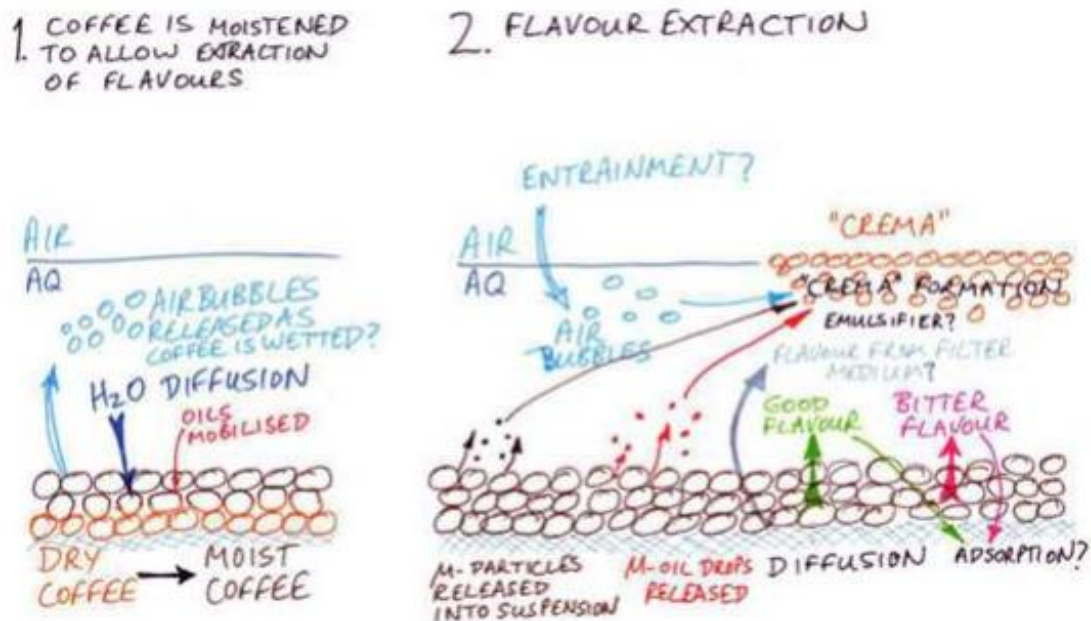 1. COFFEE IS MOISTENED
TO ALLOW EXTRACTION
OF FLAVOURS
AIR
AQ
AIR BUBBLES
RELEASED AS
COFFEE IS WETTED?
H₂O DIFFUSION
OILS
MOBILISED
DRY
COFFEE
MOIST
COFFEE
2. FLAVOUR EXTRACTION
ENTRAINMENT?
AIR
AQ
"CREMA"
"CREMA" FORMATION
EMULSIFIER?
AIR
BUBBLES
FLAVOUR FROM FILTER
MEDIUM?
GOOD
FLAVOUR
BITTER
FLAVOUR
M-PARTICLES
RELEASED
INTO SUSPENSION
M-OIL DROPS
RELEASED
DIFFUSION
ADSORPTION?